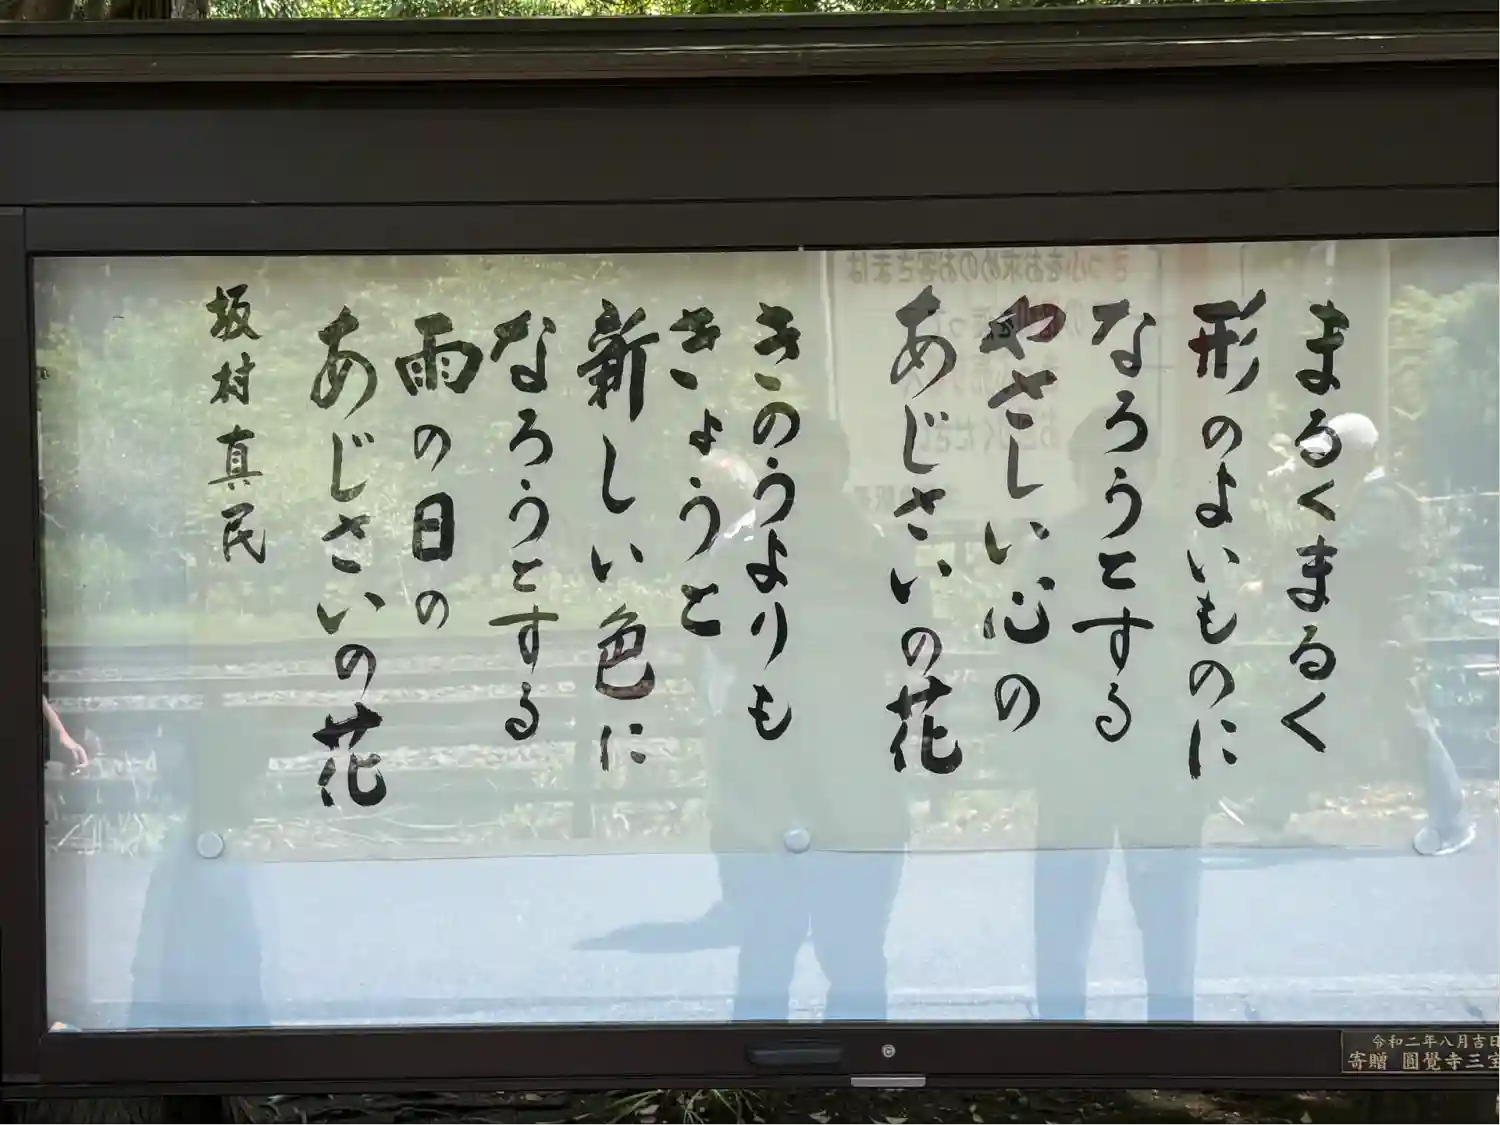 まるくまるく
形のよいものに
なろうとする
やさしい心の
あじさいの花
きのうよりも
きょうと
新しい色に
なろうとする
雨の日の
あじさいの花
坂村真民
令和二年八月吉日
寄贈 圓覺寺三